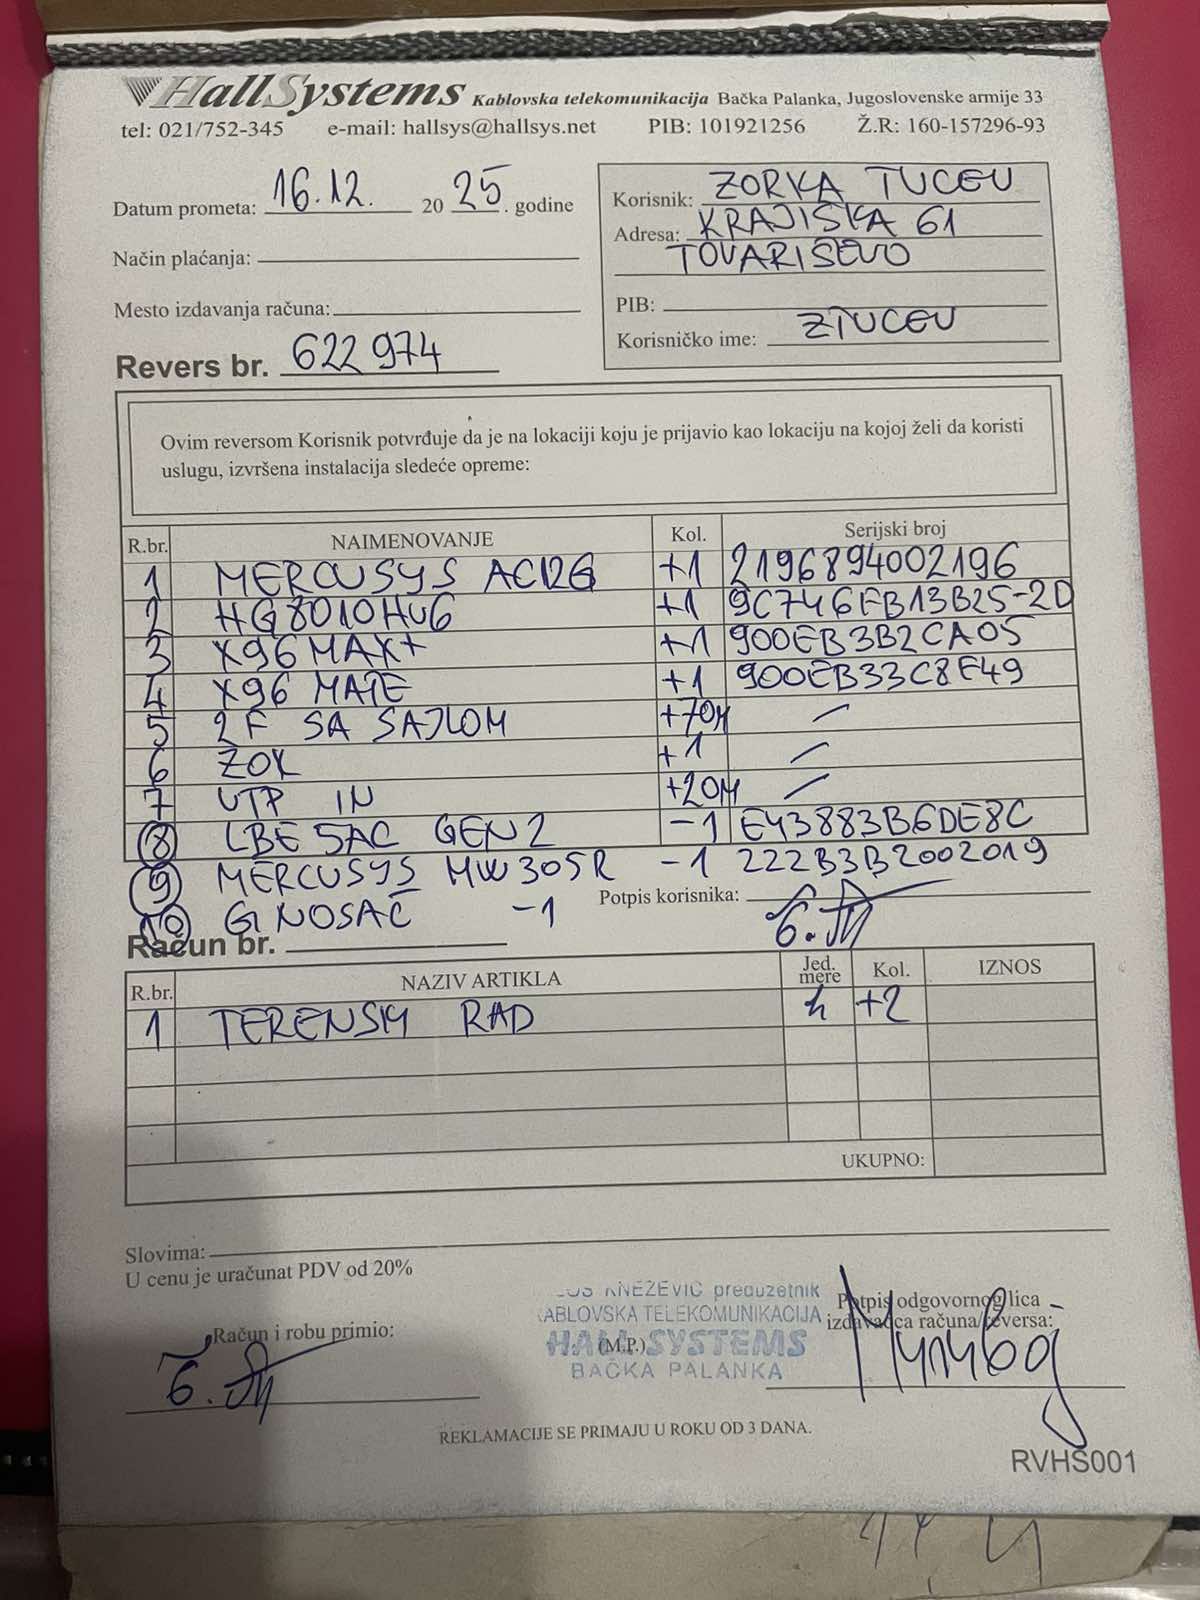 HallSystems Kablovska telekomunikacija Bačka Palanka, Jugoslovenske armije 33
tel: 021/752-345 e-mail: hallsys@hallsys.net PIB: 101921256 Ž.R: 160-157296-93
Datum prometa: 16.12. 20 25. godine
Način plaćanja:
Mesto izdavanja računa:
Revers br. 622974
Korisnik: ZORKA TUCEV
Adresa: KRAJIŠKA 61
TOVARIŠEVO
PIB:
Korisničko ime: ZTUCEV
Ovim reversom Korisnik potvrđuje da je na lokaciji koju je prijavio kao lokaciju na kojoj želi da koristi
uslugu, izvršena instalacija sledeće opreme:
R.br. NAIMENOVANJE Kol. Serijski broj
1 MERCUSYS AC12G +1 2196894002196
2 HG8010HV6 +1 9C746FB13B25-2D
3 X96 MAX+ +1 900EB3B2CA05
4 X96 MATE +1 900EB33C8F49
5 2F SA SAJLOM +70M /
6 ZOK +1 /
7 UTP IN +20M /
8 LBE 5AC GEN2 -1 E43883B6DE8C
9 MERCUSYS MW305R -1 222B3B2002019
10 G NOSAČ -1
Potpis korisnika:
Račun br.
R.br. NAZIV ARTIKLA Jed. mere Kol. IZNOS
1 TERENSKI RAD h +2
UKUPNO:
Slovima:
U cenu je uračunat PDV od 20%
Račun i robu primio:
KNEŽEVIĆ preduzetnik
KABLOVSKA TELEKOMUNIKACIJA
HALL SYSTEMS
(M.P.)
BAČKA PALANKA
Potpis odgovornog lica
izdavaoca računa/reversa:
REKLAMACIJE SE PRIMAJU U ROKU OD 3 DANA.
RVHS001